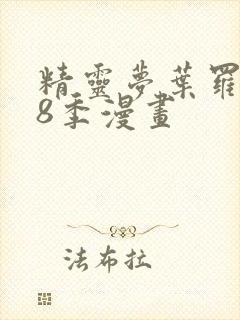 精靈夢葉羅
8季漫畫
法布拉